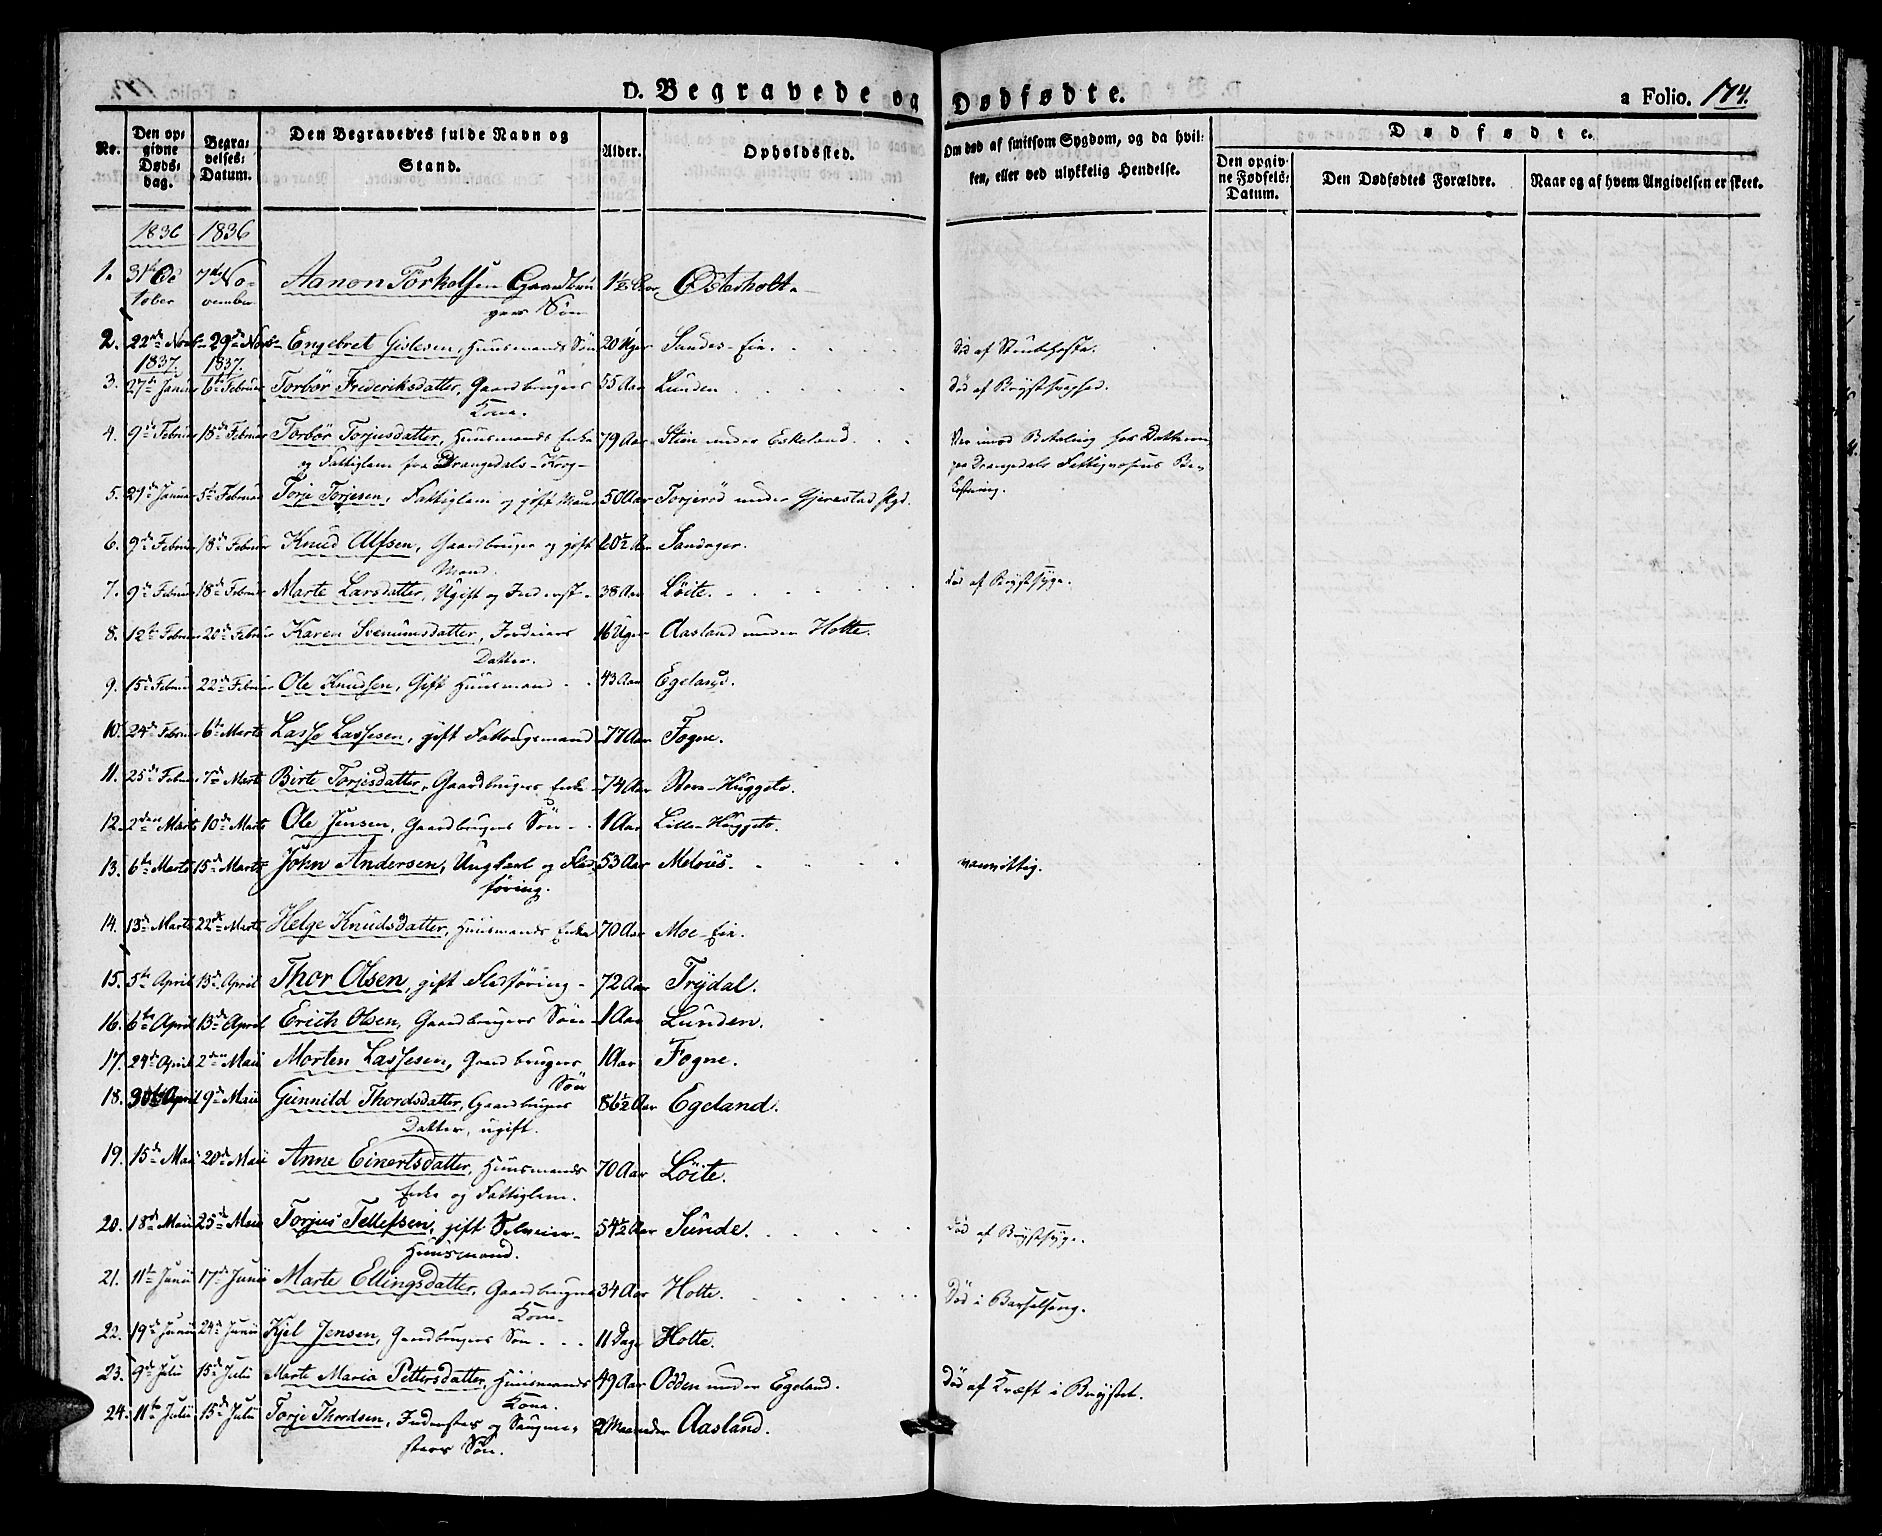 D. Begravede og Dødfødte.
a Folio. 174.
No.
Den opgivne Dødsdag.
Begravelses-Datum.
Den Begravedes fulde Navn og Stand.
Alder.
Opholdssted.
Om død af smitsom Sygdom, og da hvilken, eller ved ulykkelig Hendelse.
Dødfødte.
Den opgivne Fødsels-Datum.
Den Dødfødtes Forældre.
Naar og af hvem Angivelsen er skeet.
1836 1836
1. 31te Oc 7de No- Aanon Torkelsen Gaardbru 1½ Aar Østerholt.
tober vember gers Søn
2. 22de Novb 29de Novb Engebret Gislesen, Huusmands Søn 20 Uger Sandes-Eie. Død af Strubehoste.
1837. 1837.
3. 27de Januar 6te Februar Torbør Frederiksdatter, Gaardbrugers 55 Aar Lunden Død af Brystsvaghed.
Kone.
4. 9de Februar 18de Februar Torbør Torjusdatter, Huusmands Enke 79 Aar Stien under Eskeland. Var imod Betaling hos Datteren
og Fattiglem fra Drangedals-Krog- paa Drangedals Fattigvæsens Be-
5. 29de Januar 5te Februar Torje Torjesen, Fattiglem og gift Mand 50 Aar Torjerød under Gjerestad Pgd. kostning.
6. 9de Februar 18de Februar Knud Alfsen, Gaardbruger og gift 60½ Aar Sandager.
Mand.
7. 9de Februar 18de Februar Marte Larsdatter, Ugift og Inderst 38 Aar Löite. Død af Brystsyge.
8. 12te Februar 20de Februar Karen Svenumsdatter, Jordeiers 16 Uger Aasland under Holte.
Datter.
9. 15de Februar 22de Februar Ole Knudsen, Gift Huusmand 43 Aar Egeland.
10. 24de Februar 6te Marts Lasse Lassesen, gift Fattigmand 77 Aar Fogne.
11. 25de Februar 7de Marts Birte Torjesdatter, Gaardbrugers Enke 74 Aar Store-Huggeto.
12. 2den Marts 10de Marts Ole Jensen, Gaardbrugers Søn 1 Aar Lille-Huggeto.
13. 6te Marts 15de Marts John Andersen, Ungkarl og Fled- 53 Aar Melaas. vanvittig.
føring.
14. 13de Marts 22de Marts Helge Knudsdatter, Huusmands Enke 70 Aar Moe-Eie.
15. 5te April 13de April Thor Olsen, gift Fledføring 72 Aar Trydal.
16. 6te April 13de April Erich Olsen, Gaardbrugers Søn 1 Aar Lunden.
17. 24de April 2den Maii Morten Lassesen, Gaardbrugers 1 Aar Fogne.
Søn
18. 30te April 9de Maii Gunnild Thordsdatter, Gaardbrugers 86½ Aar Egeland.
Datter, ugift.
19. 15de Maii 20de Maii Anne Einertsdatter, Huusmands 70 Aar Löite.
Enke og Fattiglem.
20. 18de Maii 25de Maii Torjus Tellefsen, gift Selveier- 54½ Aar Sunde. Død af Brystsyge.
Huusmand.
21. 11te Junii 17de Junii Marte Ellingsdatter, Gaardbrugers 34 Aar Holte. Død i Barselseng.
Kone
22. 19de Junii 24de Junii Kjel Jensen, Gaardbrugers Søn 11 Dage Holte.
23. 9de Julii 15de Julii Marte Maria Pettersdatter, Huusmands 49 Aar Odden under Egeland. Død af Kræft i Brystet.
Kone.
24. 11te Julii 15de Julii Torje Thordsen, Indersters og Saugme- 2 Maaneder Aasland.
sters Søn.